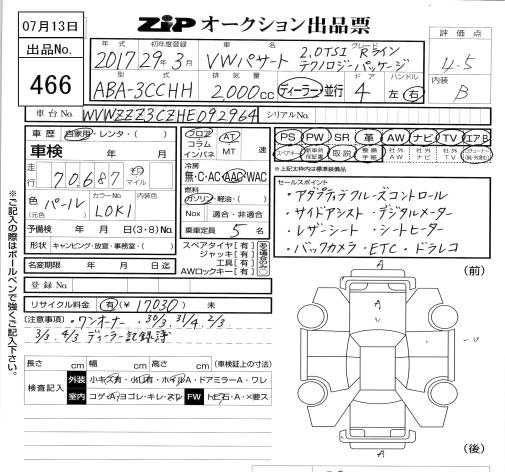 07月13日
ZIP オークション出品票
出品No.
466
評価点
4.5
内装
B
年式 初年度登録 車名 グレード
2017 29年3月 VWパサート 2.0TSI Rライン
テクノロジーパッケージ
型式 排気量 ドア ハンドル
ABA-3CCHH 2000cc ディーラー・並行 4 左 右
車台No. WVWZZZ3CZHE092964 シリアルNo.
車歴 自家用・レンタ・( )
車検 年 月
走行 70,687 キロ マイル
色(元色) パール カラーNo. LOK1 内装色
予備検 年 月 日(3・8)No.
形状 キャンピング・放宣・事務室・( )
名変期限 年 月 日迄
登録No.
フロア コラム インパネ AT MT 速
冷房
無・C・AC AAC・WAC
燃料
ガソリン・軽油・( )
Nox 適合・非適合
乗車定員 5 名
スペアタイヤ【有】
ジャッキ【有】
工具【有】
AWロックキー【有】
PS PW SR 革 AW ナビ TV エアB
スペアキー 新車時保証書 取説 整備手帳 社外AW 社外ナビ 社外TV
※上記太枠内は標準装備品
セールスポイント
・アダプティブクルーズコントロール
・サイドアシスト・デジタルメーター
・レザーシート・シートヒーター
・バックカメラ・ETC・ドラレコ
リサイクル料金 有(¥ 17,030) 未
(注意事項)・ワンオーナー・30/3. 31/4. 2/3.
3/3. 4/3 ディーラー記録簿
長さ cm 幅 cm 高さ cm (車検証上の寸法)
検査記入 外装 小キズ有・小凹有・ホイルA・ドアミラーA・ワレ
室内 コゲA・ヨゴレ・キレ・スレ FW トビ石・A・×要ス
※ご記入の際はボールペンで強くご記入下さい。
(前)
A
A
A
(後)